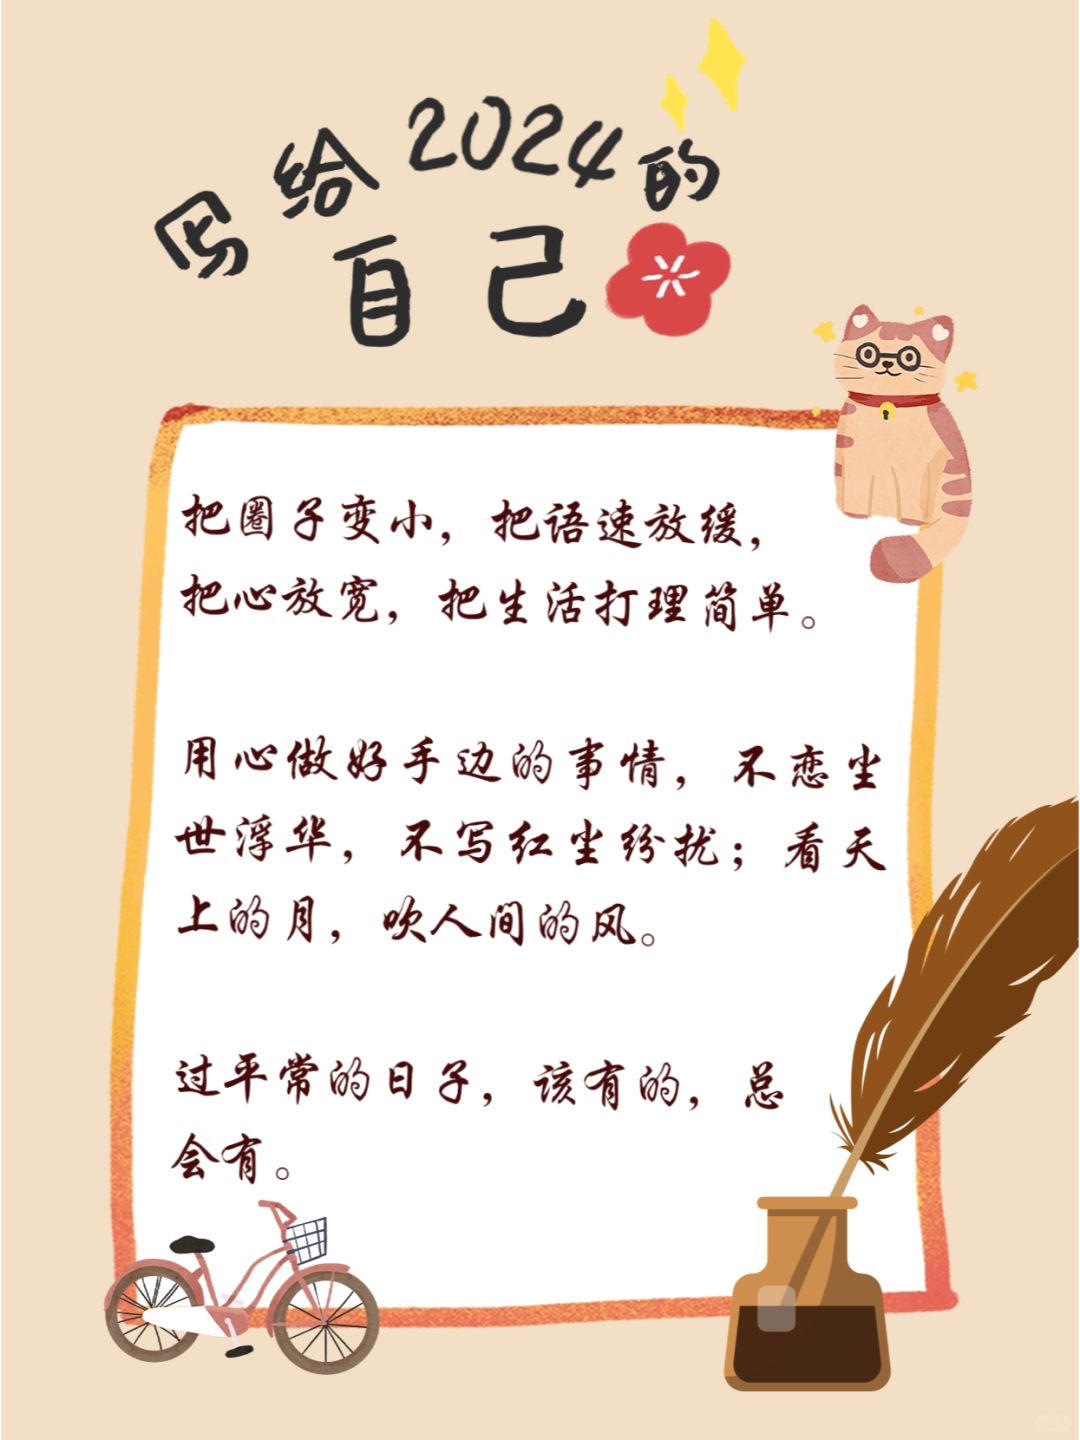 写给2024的
自己
把圈子变小，把语速放缓，
把心放宽，把生活打理简单。
用心做好手边的事情，不恋尘
世浮华，不写红尘纷扰；看天
上的月，吹人间的风。
过平常的日子，该有的，总
会有。